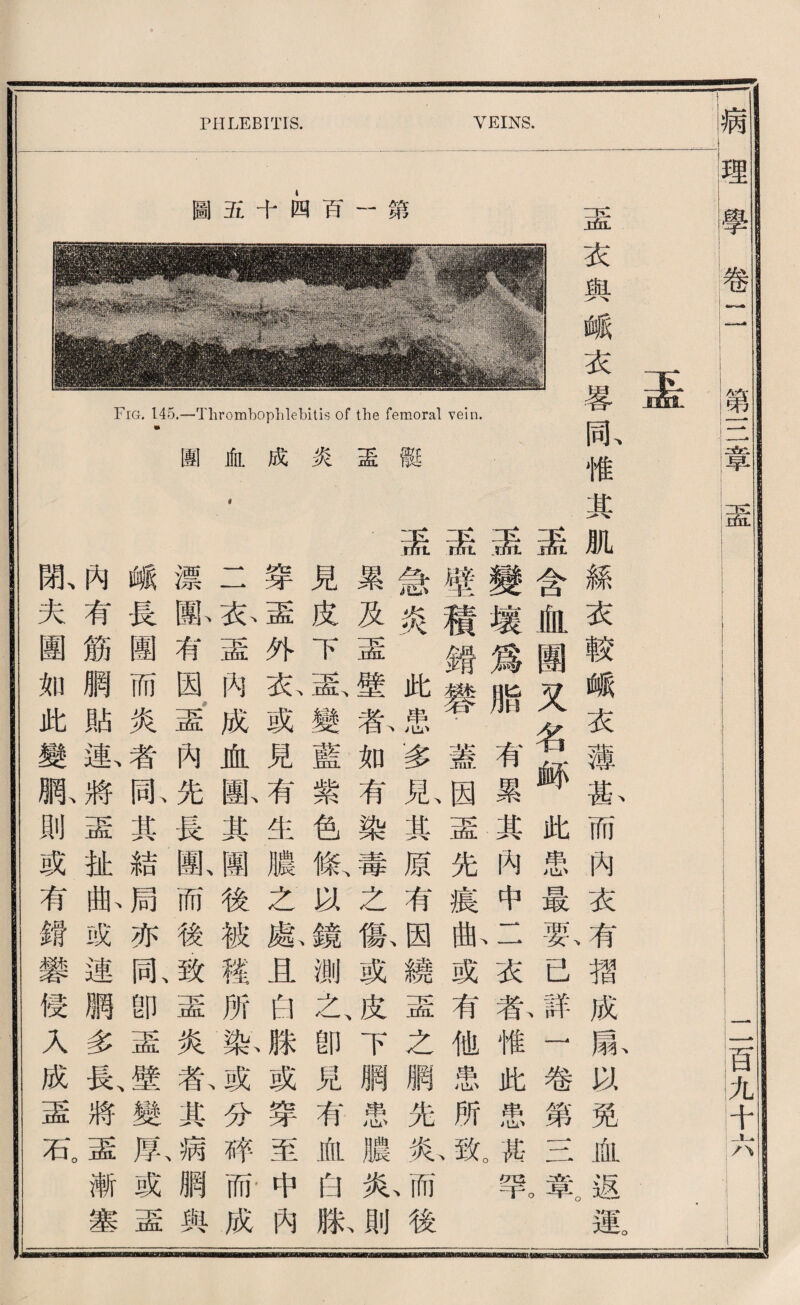 病理學 卷二 第三章
二百九十六
PHLEBITIS. VEINS.
衣與衇衣畧同、惟其肌絲衣較衇衣薄甚、而內衣有摺成扇、以免血返運。
含血團又名衃 此患最要、已詳一卷第三章。
變壞爲脂 有累其內中二衣者、惟此患甚罕。
壁積礬 蓋因先痕曲、或有他患所致。
急炎 此患多見、其原有因繞之先炎、而後
累及壁者、如有染毒之傷、或皮下患膿炎、則
見皮下、變藍紫色條、以鏡測之、卽見有血白、
穿外衣、或見有生膿之處、且白或穿至中內
二衣、內成血團、其團後被所染、或分碎而成
漂團、有因內先長團、而後致炎者、其病與
衇長團而炎者同、其結局亦同、卽壁變厚、或
內有筋貼連、將扯曲、或連多長、將漸塞
閉、夫團如此變、則或有礬侵入成石。
第一百四十五圖
Fig. 145.—Thrombophlebitis of the femoral vein.
炎成血團